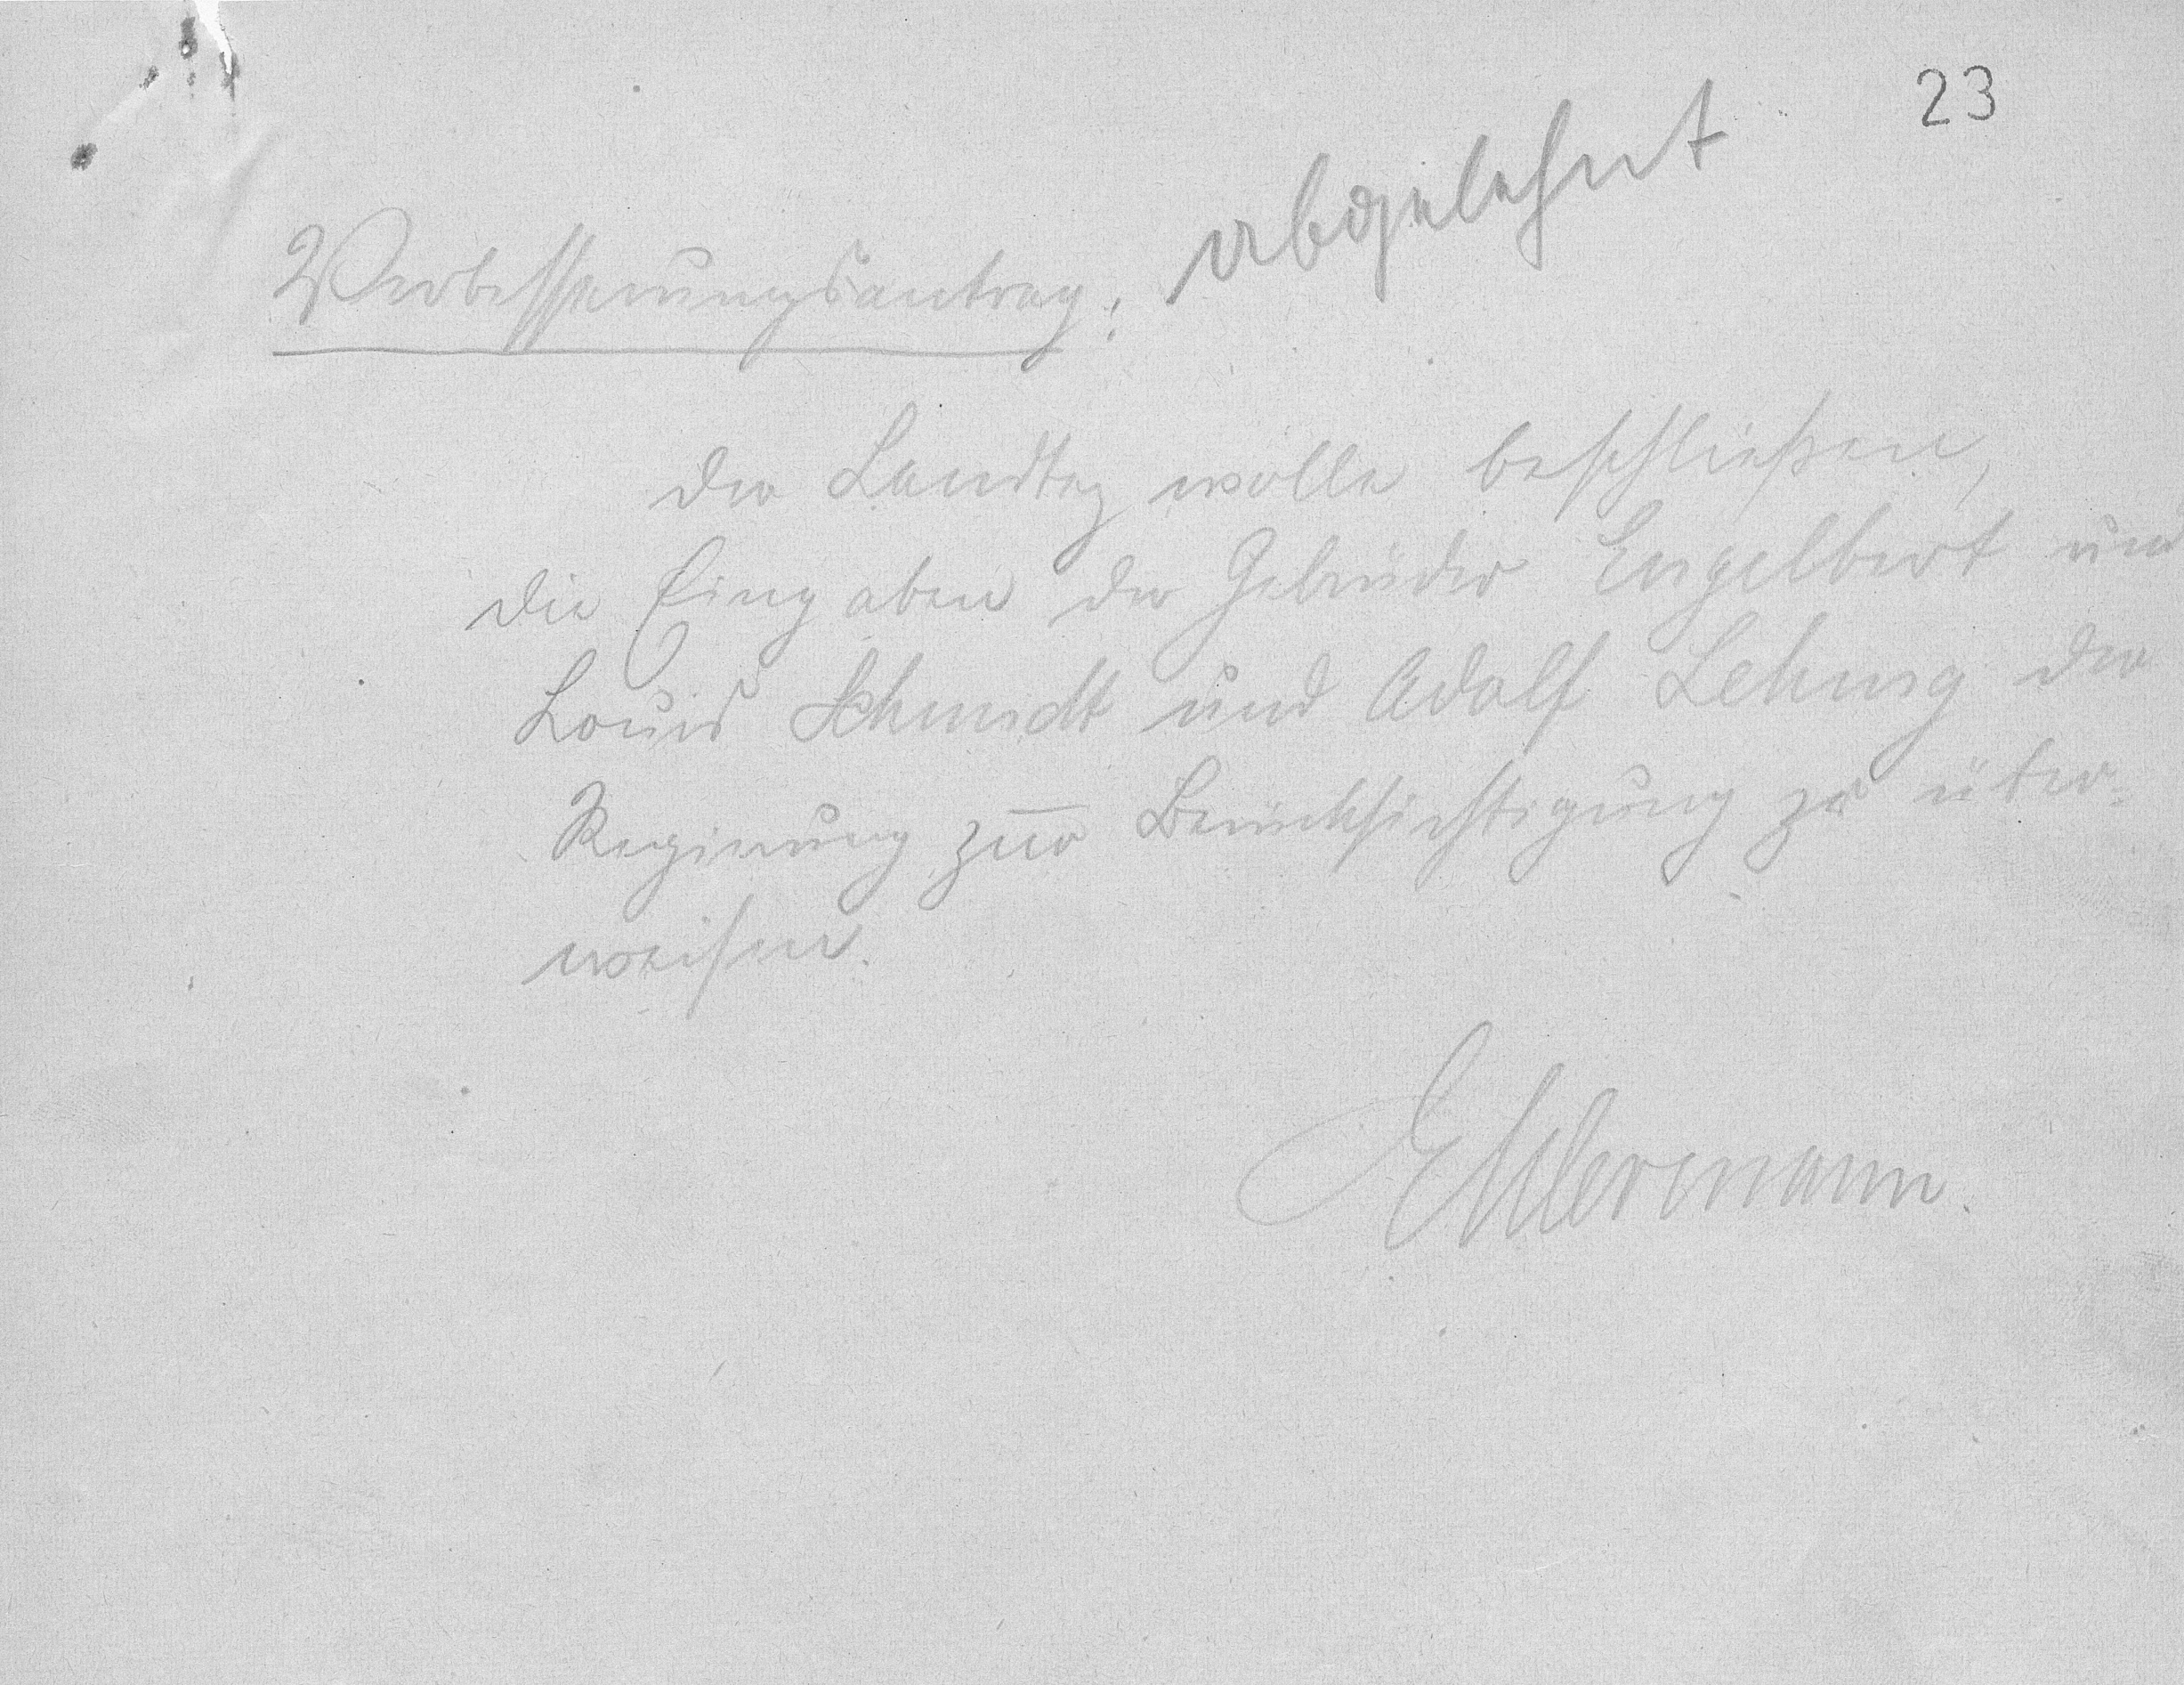 23
abgelehnt
Verbesserungsantrag:
Der Landtag wolle beschließen,
die Eingaben der Gebrüder Engelbert und
Louis Schmidt und Adolf der
Regierung zur Berücksichtigung zu über-
weisen.